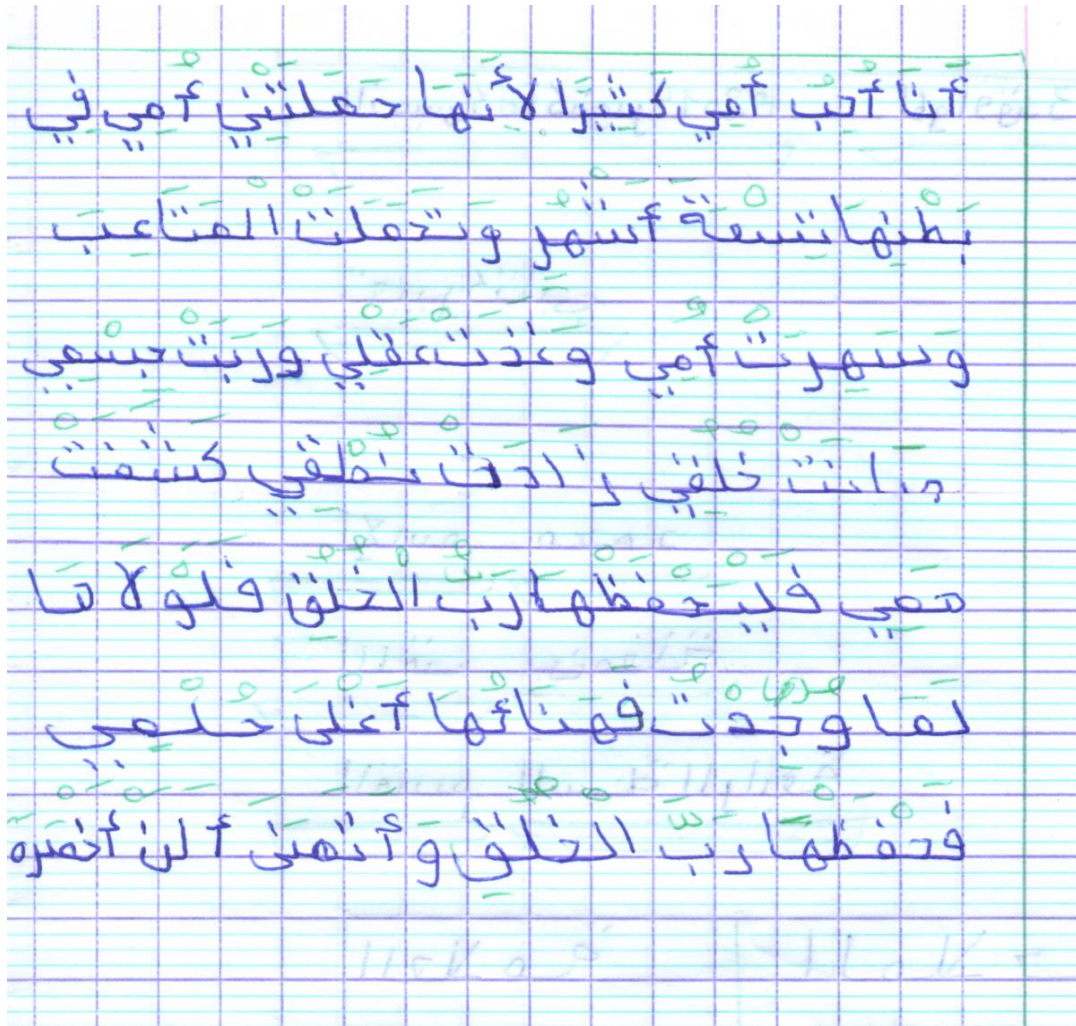 أنا أحب أمي كثيرا لأنها حملتني أمي في
بطنها تسعة أشهر وتحملت المتاعب
وسهرت أمي وغذت عقلي وربت جسمي
خلقي زادت نطقي كشفت
فليحفظها رب الخلق فلولا ها
لما وجدت فهنائها أغلى حلمي
فحفظها رب الخلق وأتمنى ألن أخصره